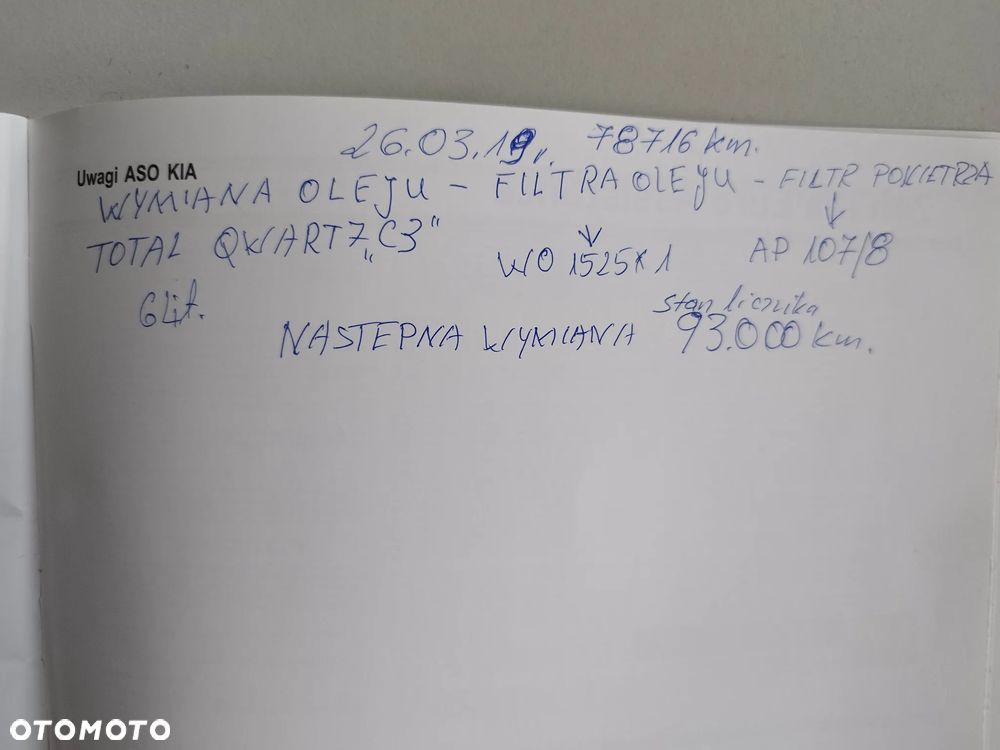 26.03.19r. 78716 km.
Uwagi ASO KIA
WYMIANA OLEJU - FILTRA OLEJU - FILTR POWIETRZA
TOTAL QWARTZ „C3"
WO 1525x1
AP 107/8
6 Lit.
stan licznika
NASTEPNA WYMIANA 93.000 km.
OTOMOTO